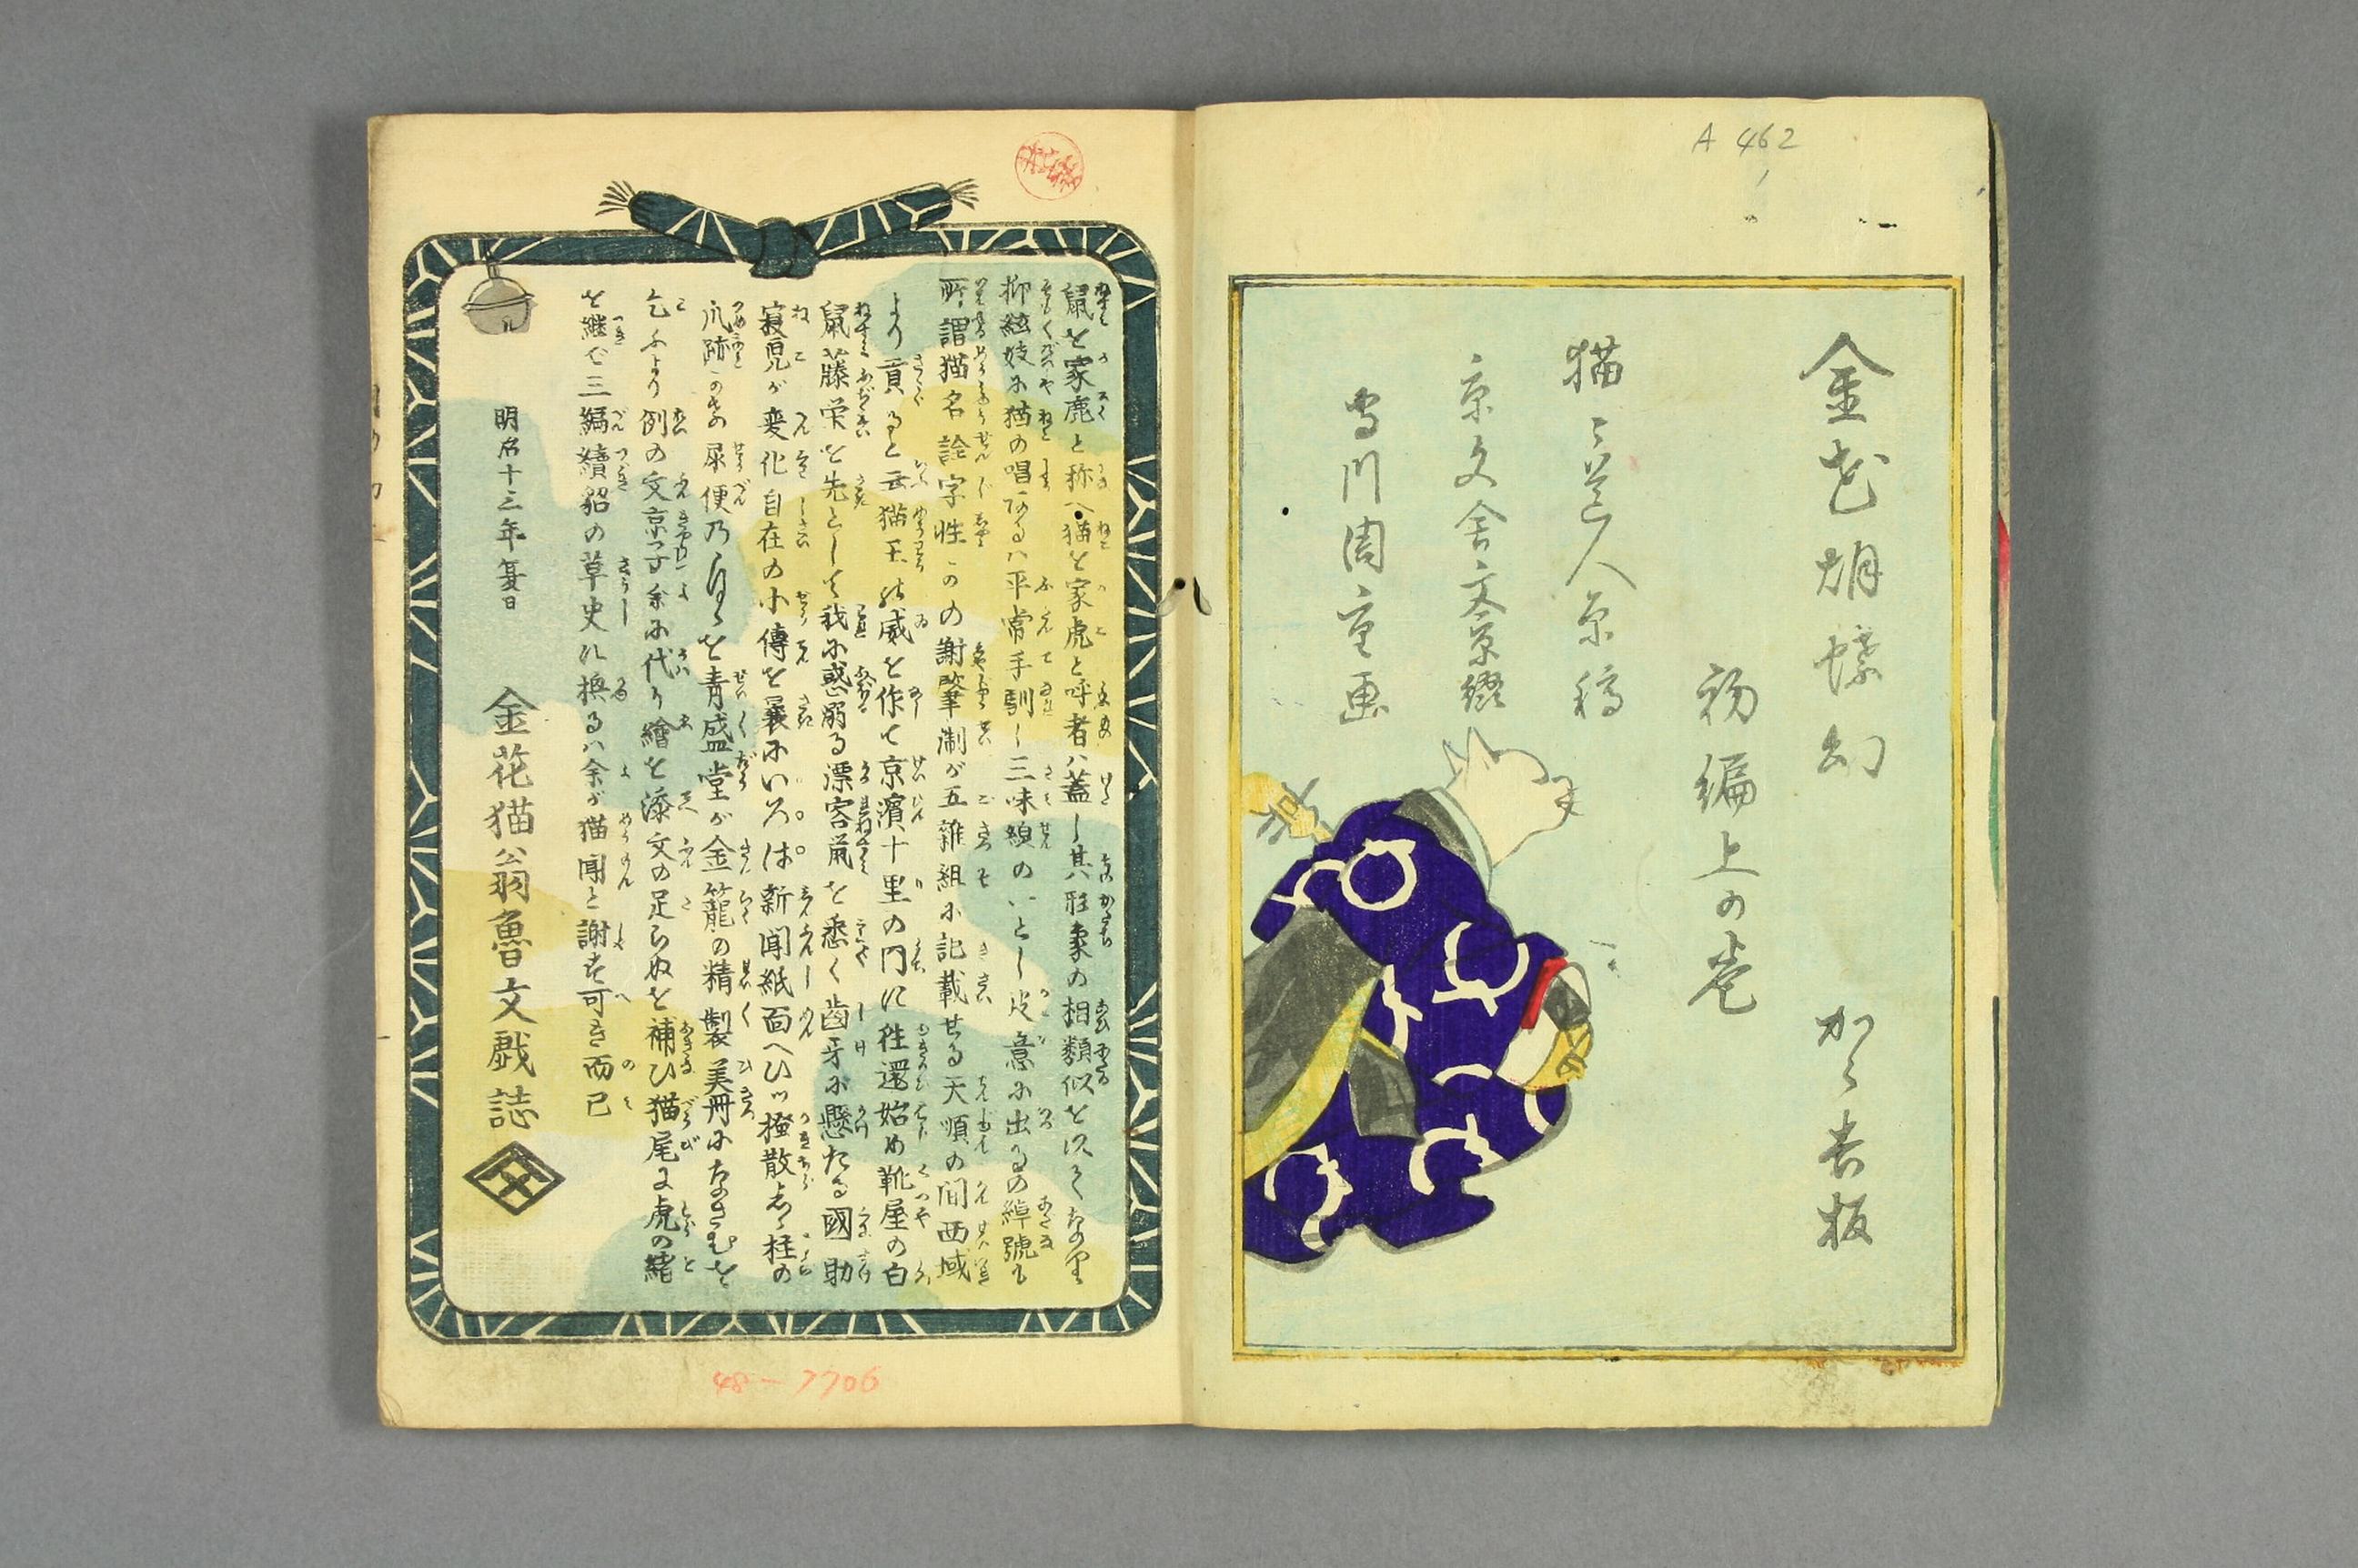 A 462
金花胡蝶幻
初編上の巻
猫々道人原稿
京文舎文京綴
守川周重画
鼠を家鹿と称へ猫を家虎と呼者ハ蓋し其形象の相類似を以て
抑絃妓に猫の唱あるハ平常手馴し三味線のいとし皮意に出るの綽號
所謂猫名詮字性
の謝肇淛が五雜組に記載せる天順の間西域
より貢ると云猫王の威を作て京濱十里の門に往還始め靴屋の白
鼠藤栄を先として我に惑溺る漂客鼠を悉く歯牙に懸たる國助
寐児が変化自在の小傳を曩にいろは新聞紙面へひツ掻散
柱の
爪跡
の尿便乃
を青盛堂が金籠の精製美冊に
乞ふより例の文京子余に代り繪を添文の足らぬを補ひ猫尾に虎の緒
を継ぎ三編續貂の草史に換るハ余が猫聞と謝す可き而已
明治十三年夏日
金花猫翁魯文戯誌
48-7706